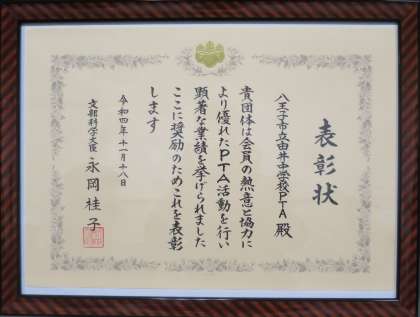 表彰状
八王子市立由井中学校PTA殿
貴団体は会員の熱意と協力に
より優れたPTA活動を行い
顕著な業績を挙げられました
ここに奨励のためこれを表彰
します
令和四年十一月十八日
文部科学大臣 永岡桂子